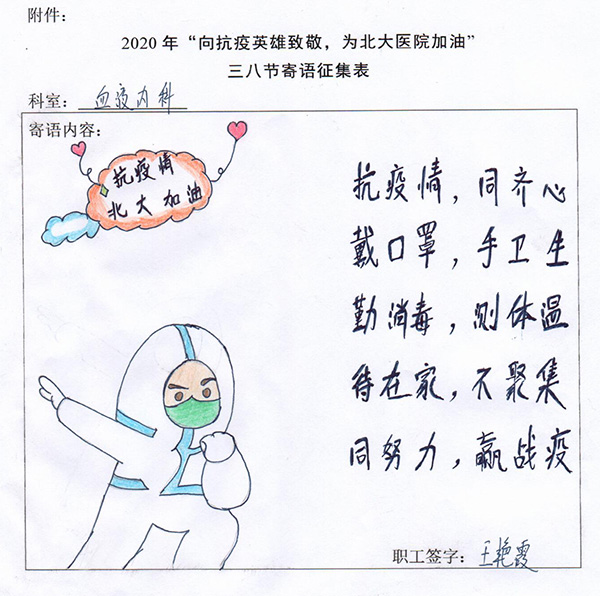 附件：
2020 年“向抗疫英雄致敬，为北大医院加油”
三八节寄语征集表
科室：血液内科
寄语内容：
抗疫情
北大加油
抗疫情，同齐心
戴口罩，手卫生
勤消毒，测体温
待在家，不聚集
同努力，赢战疫
职工签字：王艳霞